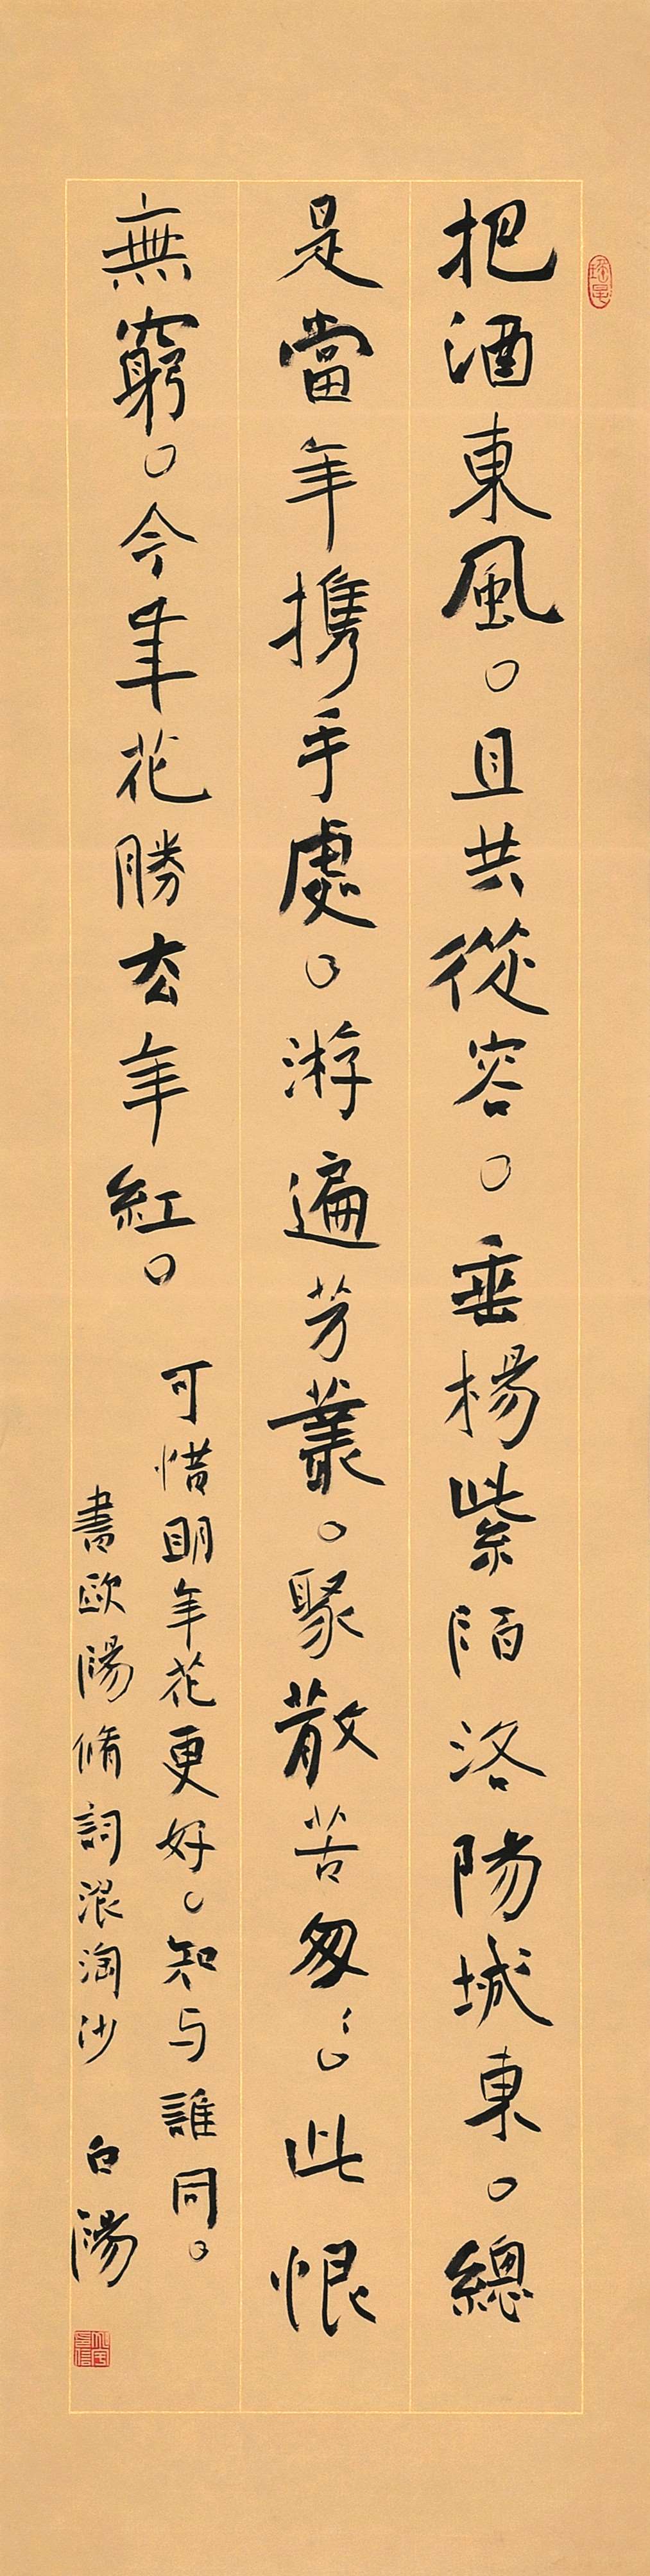 把酒東風。且共從容。垂楊紫陌洛陽城東。總
是當年携手處。游遍芳叢。聚散苦匆〻。此恨
無窮。今年花勝去年紅。
可惜明年花更好。知与誰同。
書歐陽脩詞浪淘沙 白陽